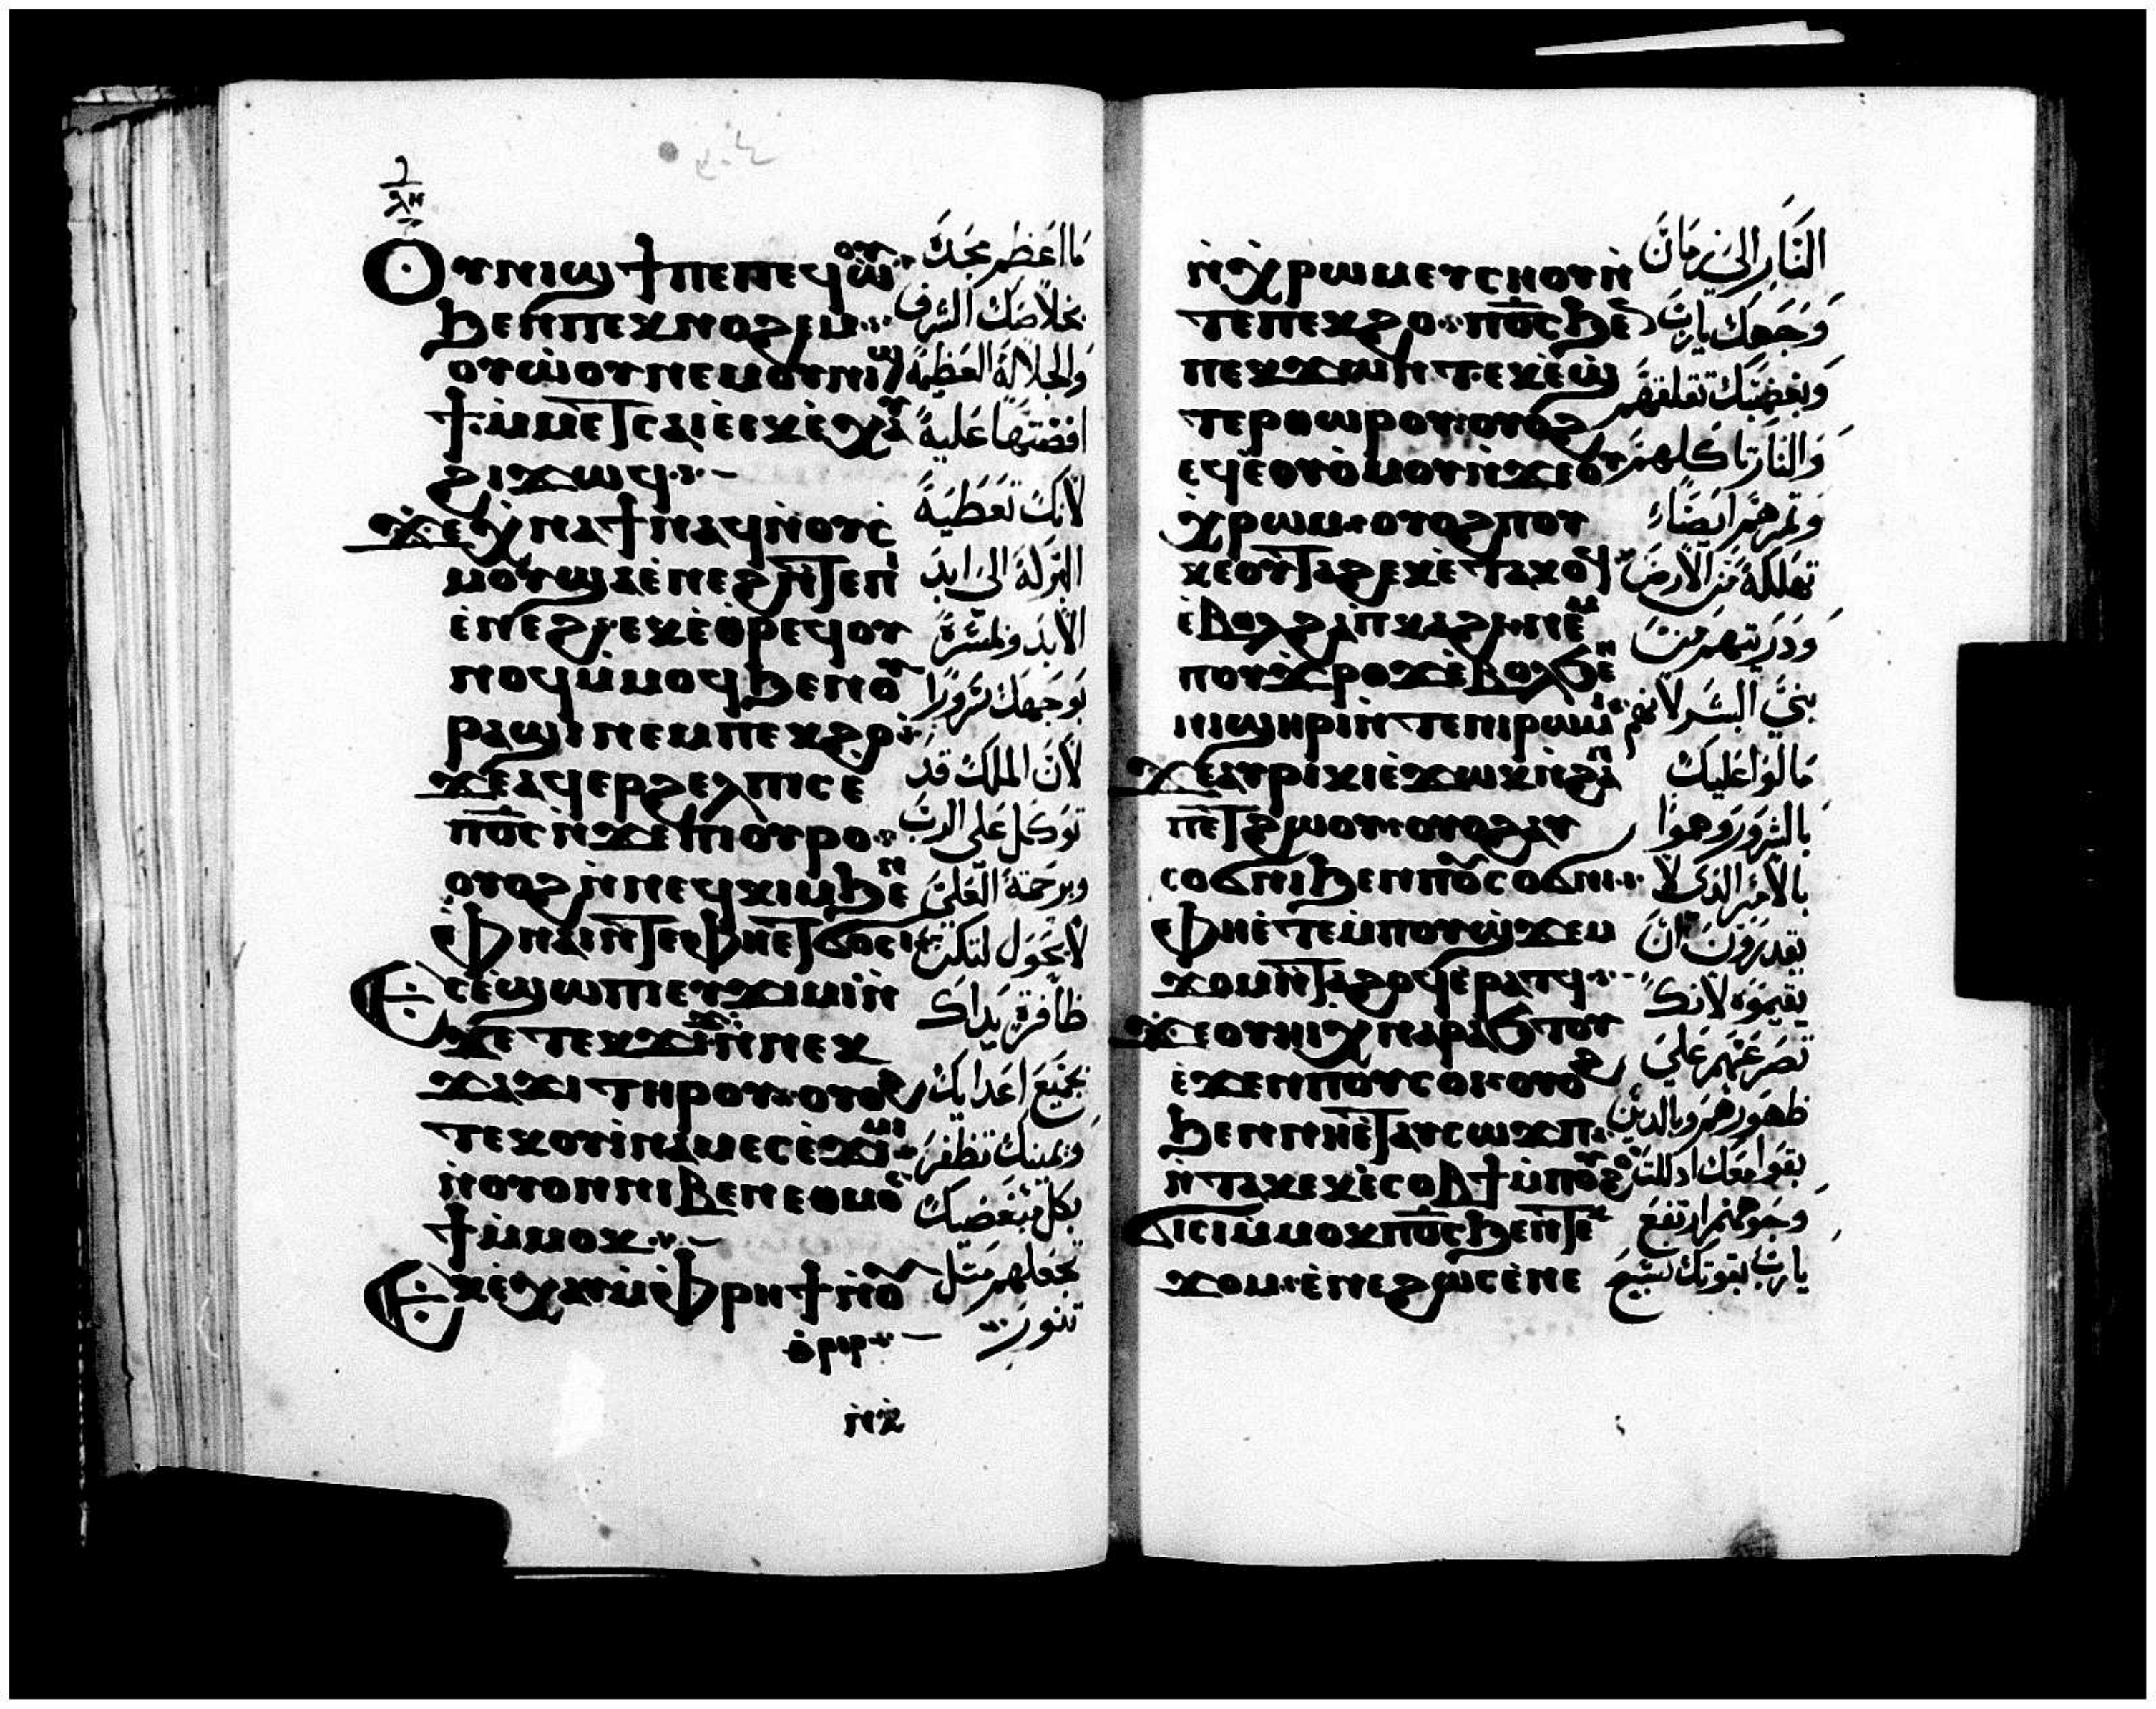 ⲗⲏ
Ⲟⲩⲛⲓϣϯ ⲡⲉ ⲡⲉϥⲱ̀ⲟⲩ
ϧⲉⲛ ⲡⲉⲕⲛⲟϩⲉⲙ
ⲟⲩⲱ̀ⲟⲩ ⲛⲉⲙ ⲟⲩⲛⲓϣ
ϯ ⲙ̀ⲙⲉⲧⲥⲁⲓⲉ̀ ⲉⲕⲉ̀ⲭⲁⲩ
ϩⲓϫⲱϥ
ϫⲉ ⲭ̀ⲛⲁϯ ⲛⲁϥ ⲛ̀ⲟⲩⲥ
ⲙⲟⲩ ϣⲁ ⲉ̀ⲛⲉϩ ⲛ̀ⲧⲉ ⲡⲓ
ⲉ̀ⲛⲉϩ ⲉⲕⲉ̀ⲑⲣⲉϥⲟⲩ
ⲛⲟϥ ⲙ̀ⲙⲟϥ ϧⲉⲛ ⲟⲩ
ⲣⲁϣⲓ ⲛⲉⲙ ⲡⲉⲕϩⲟ
ϫⲉ ⲁϥⲉⲣϩⲉⲗⲡⲓⲥ ⲉ̀
ⲡ̀ⲟ̅ⲥ̅ ⲛ̀ϫⲉ ⲡⲓⲟⲩⲣⲟ
ⲟⲩⲟϩ ⲛ̀ⲛⲉϥⲕⲓⲙ ϧⲉⲛ
ⲫ̀ⲛⲁⲓ ⲛ̀ⲧⲉ ⲫⲏⲉⲧϭⲟⲥⲓ
Ⲉⲥⲉ̀ϣⲱⲡⲓ ⲉⲩϫⲓⲙⲓ ⲛ̀
ϫⲉ ⲧⲉⲕϫⲓϫ ⲛ̀ⲛⲉⲕ
ϫⲁϫⲓ ⲧⲏⲣⲟⲩ ⲟⲩⲟϩ
ⲧⲉⲕⲟⲩⲓ̀ⲛⲁⲙ ⲉⲥⲉ̀ϫⲓⲙⲓ
ⲛ̀ⲟⲩⲟⲛ ⲛⲓⲃⲉⲛ ⲉⲑⲙⲟⲥ
ϯ ⲙ̀ⲙⲟⲕ
Ⲉⲕⲉ̀ⲭⲁⲩ ⲙ̀ⲫ̀ⲣⲏϯ ⲛ̀ⲟⲩ
ⲑ̀ⲣⲓⲣ
ⲛ̀ⲭ̀
ما اعظم مجده
بخلاصك الشرف
والجلالة العظيمة
افضتها عليه
لانك تعطيه
البركة الى ابد
الابد وتبشره
بوجهك سرورا
لان الملك قد
توكل على الرب
وبرحمة العلي
لا يحول لتكن
ظافرة يداك
بجميع اعدايك
ويمينك تظفر
بكل مبغضيك
تجعلهم مثل
تنور
ⲛ̀ⲭ̀ⲣⲱⲙ ⲉⲩⲥⲏⲟⲩ ⲛ̀
ⲧⲉ ⲡⲉⲕϩⲟ ⲡ̀ⲟ̅ⲥ̅ ϧⲉⲛ
ⲡⲉⲕϫⲱⲛⲧ ⲉⲕⲉ̀ϣ
ⲧⲉⲣⲑⲱⲣⲟⲩ ⲟⲩⲟϩ
ⲉϥⲉ̀ⲟⲩⲟ̀ⲙⲟⲩ ⲛ̀ϫⲉ ⲟⲩ
ⲭ̀ⲣⲱⲙ ⲟⲩⲟϩ ⲡⲟⲩ
ⲕⲉⲟⲩⲧⲁϩ ⲉⲕⲉ̀ⲧⲁⲕⲟϥ
ⲉ̀ⲃⲟⲗ ϩⲁ ⲡ̀ⲕⲁϩⲓ ⲛⲉⲙ
ⲡⲟⲩϫ̀ⲣⲟϫ ⲉ̀ⲃⲟⲗϧⲉⲛ
ⲛⲓϣⲏⲣⲓ ⲛ̀ⲧⲉ ⲛⲓⲣⲱⲙⲓ
ϫⲉ ⲁⲩⲣⲓⲕⲓ ⲉ̀ϫⲱⲕ ⲛ̀ϩⲁⲛ
ⲡⲉⲧϩⲱⲟⲩ ⲟⲩⲟϩ ⲁⲩ
ⲥⲟϭⲛⲓ ϧⲉⲛ ⲛⲟⲩⲥⲟϭⲛⲓ
ⲫⲏⲉ̀ⲧⲉ ⲙ̀ⲡⲟⲩϣ̀ϫⲉⲙ
ϫⲟⲙ ⲛ̀ⲧⲁϩⲟϥ ⲉ̀ⲣⲁⲧϥ
ϫⲉ ⲟⲩⲏⲓ ⲭ̀ⲛⲁⲣⲁϧⲧⲟⲩ
ⲉ̀ϫⲉⲛ ⲡⲟⲩⲥⲟⲓ ⲟⲩⲟϩ
ϧⲉⲛ ⲛⲏⲉ̀ⲧⲁⲩⲥⲱϫⲡ
ⲛ̀ⲧⲁⲕ ⲉⲕⲉ̀ⲥⲟⲃϯ ⲙ̀ⲡⲟⲩϩⲟ
ϭⲓⲥⲓ ⲙ̀ⲙⲟⲕ ⲡ̀ⲟ̅ⲥ̅ ϧⲉⲛ ⲧⲉⲕ
ϫⲟⲙ ⲉ̀ⲛⲉϩⲱⲥ ⲉ̀ⲛⲉ
النار الى زمان
وجهك يارب
وبغضبك تقلقهم
والنار تاكلهم
وثمرهم ايضا
تهلكه من الارض
وذريتهم من
بني البشر لانهم
مالوا عليك
بالشرور وهموا
بالامر الذى لا
يقدرون ان
يقيموه لانك
تصرعهم على
ظهورهم وبالذين
بقوا معك
وجوههم ارتفع
يارب بقوتك نسبح